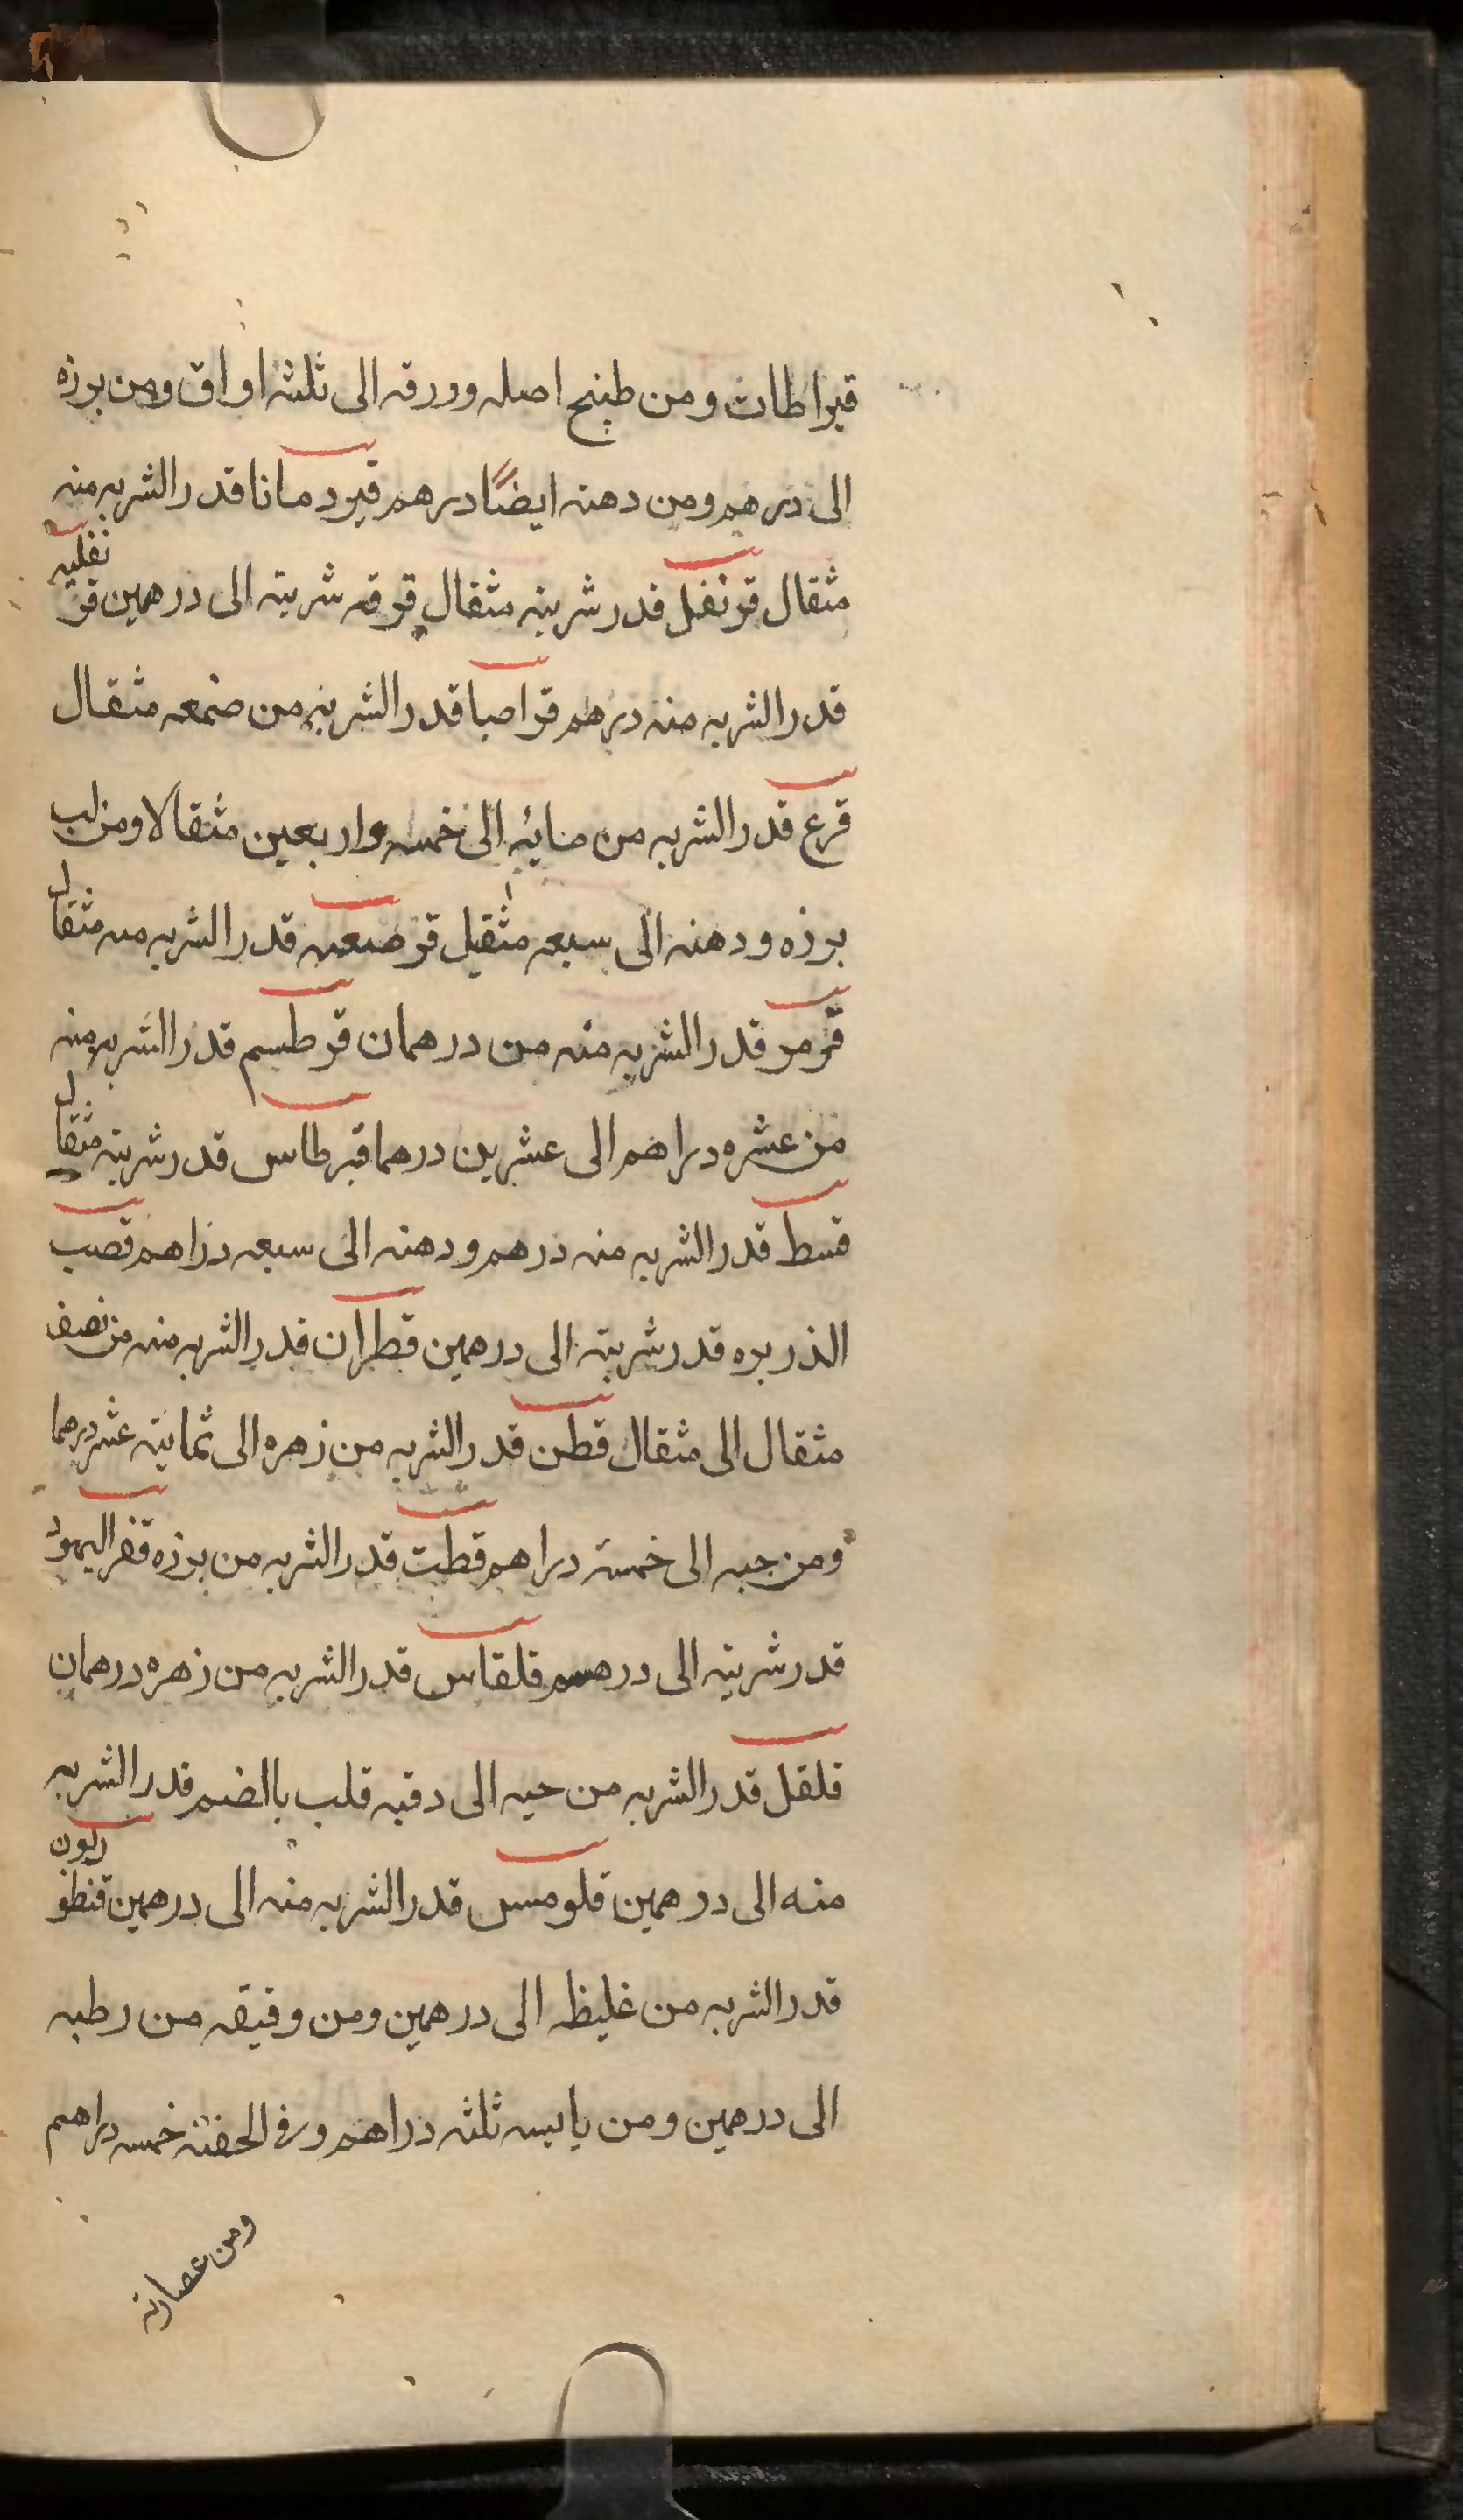 قيراطات ومن طبيخ اصله وورقه الى ثلثه اواق ومن برزه
الى درهم ومن دهنه ايضًا درهم قيردمانا قدر الشربه منه
مثقال قرنفل قدر شربته مثقال قرقه شربته الى درهمين قر
نفليه
قدر الشربه منه درهم قراصيا قدر الشربه من صمغه مثقال
قرع قدر الشربه من مائيه الى خمسه واربعين مثقالا ومن لب
برزه ودهنه الى سبعه مثقيل قرصعنه قدر الشربه منه مثقال
قرمر قدر الشربه منه من درهمان قرطسم قدر الشربه منه
من عشره دراهم الى عشرين درهما قبرطاس قدر شربته مثقال
قسط قدر الشربه منه درهم ودهنه الى سبعه دراهم قصب
الذريره قدر شربته الى درهمين قطران قدر الشربه منه من نصف
مثقال الى مثقال قطن قدر الشربه من زهره الى ثمانية عشر درهما
ومن حبه الى خمسة دراهم قطت قدر الشربه من برزه قفر اليهود
قدر شربته الى درهم قلقاس قدر الشربه من زهره درهمان
قلقل قدر الشربه من حبه الى دقيه قلب بالضم قدر الشربه
منه الى درهمين قلومس قدر الشربه منه الى درهمين قنطو
ريون
قدر الشربه من غليظه الى درهمين ومن وقيقه من رطبه
الى درهمين ومن يابسه ثلثه دراهم وفى الحقنة خمسه دراهم
ومن عصارته